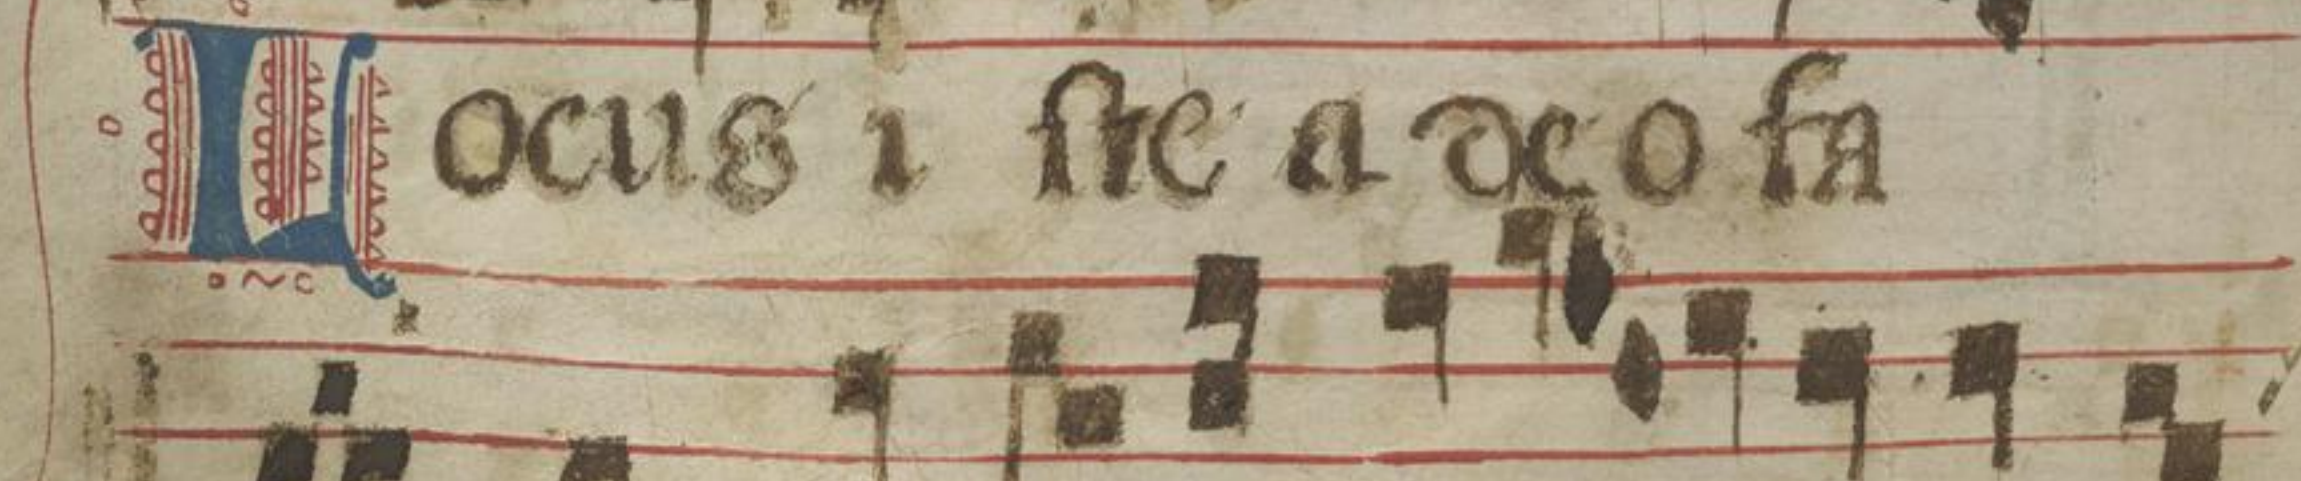 Locus i ste a deo fa